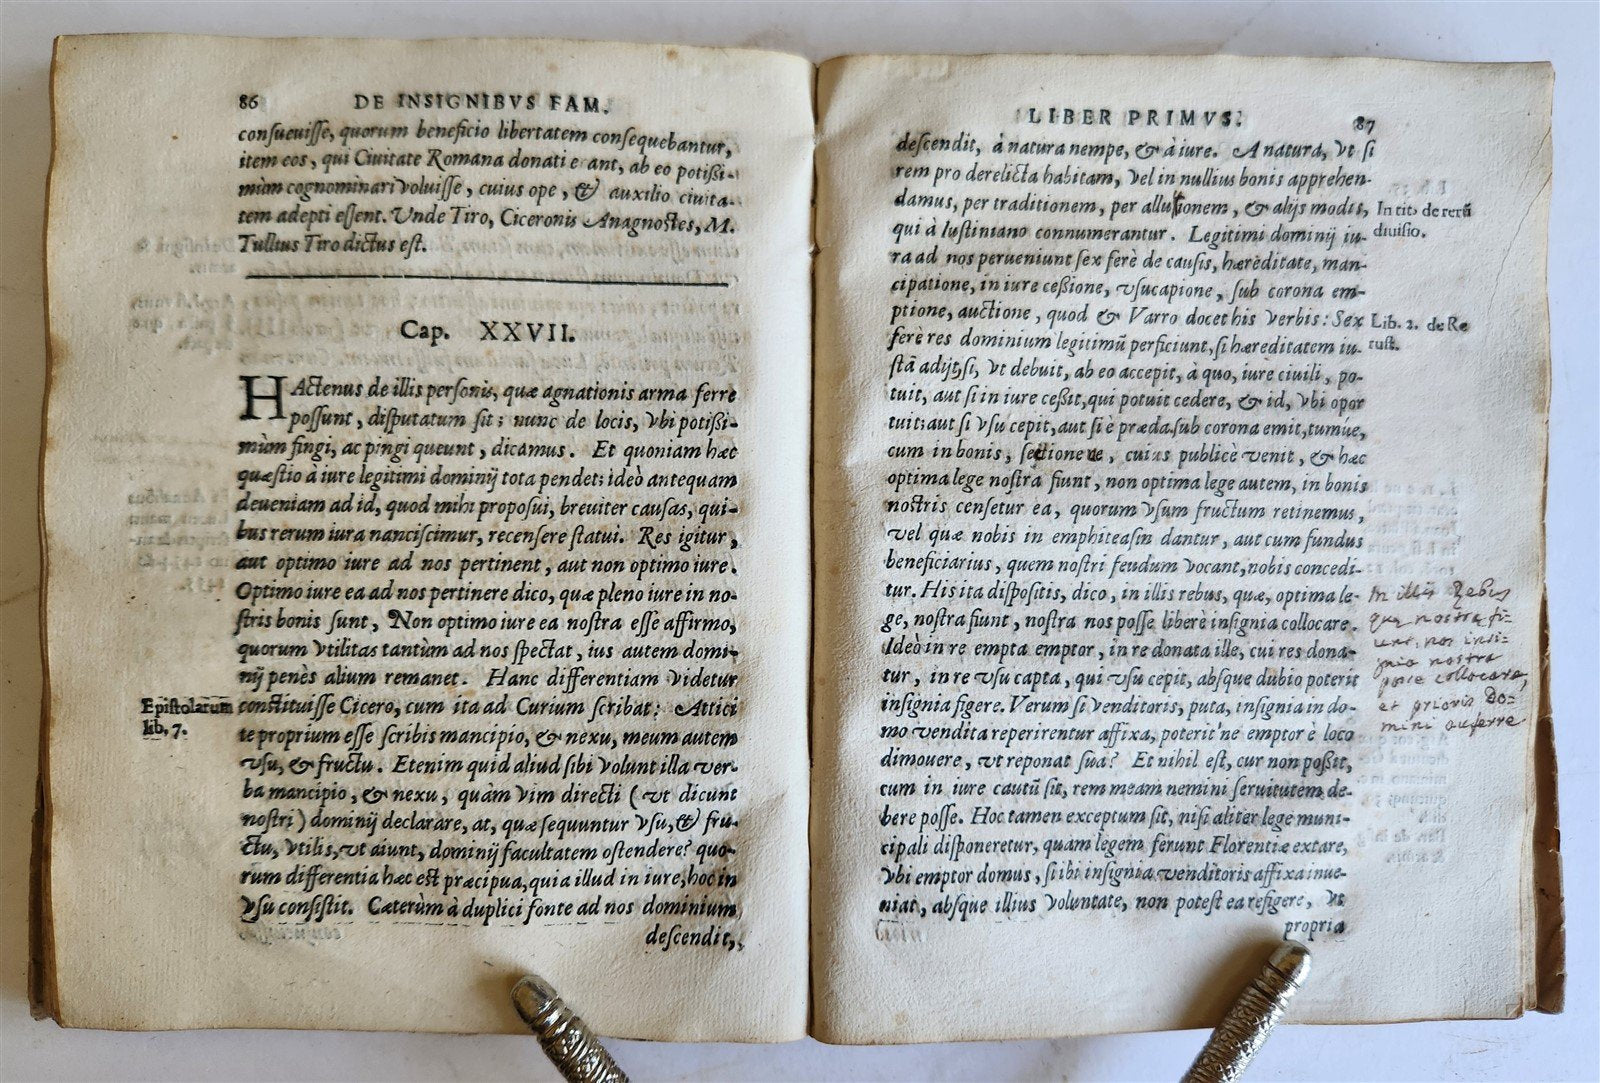 86 DE INSIGNIBVS FAM.
consueuisse, quorum beneficio libertatem consequebantur,
item eos, qui Ciuitate Romana donati e ant, ab eo potißi-
mùm cognominari voluisse, cuius ope, & auxilio ciuita-
tem adepti essent. Vnde Tiro, Ciceronis Anagnostes, M.
Tullius Tiro dictus est.
Cap. XXVII.
HActenus de illis personis, quæ agnationis arma ferre
possunt, disputatum sit; nunc de locis, vbi potißi-
mùm fingi, ac pingi queunt, dicamus. Et quoniam hæc
quæstio à iure legitimi dominij tota pendet; ideò antequam
deueniam ad id, quod mihi proposui, breuiter causas, qui-
bus rerum iura nanciscimur, recensere statui. Res igitur,
aut optimo iure ad nos pertinent, aut non optimo iure.
Optimo iure ea ad nos pertinere dico, quæ pleno iure in no-
stris bonis sunt, Non optimo iure ea nostra esse affirmo,
quorum vtilitas tantùm ad nos spectat, ius autem domi-
nij penès alium remanet. Hanc differentiam videtur
Epistolarum
lib. 7.
constituisse Cicero, cum ita ad Curium scribat: Attici
te proprium esse scribis mancipio, & nexu, meum autem
vsu, & fructu. Etenim quid aliud sibi volunt illa ver-
ba mancipio, & nexu, quàm vim directi (vt dicunt
nostri) dominij declarare, at, quæ sequuntur vsu, & fru-
ctu, vtilis, vt aiunt, dominij facultatem ostendere? quo-
rum differentia hæc est præcipua, quia illud in iure, hoc in
vsu consistit. Cæterùm à duplici fonte ad nos dominium
descendit,
LIBER PRIMVS. 87
descendit, à natura nempe, & à iure. A natura, vt si
rem pro derelicta habitam, vel in nullius bonis apprehen-
damus, per traditionem, per allusionem, & alijs modis,
qui à Iustiniano connumerantur. Legitimi dominij iu-
In tit. de rerū
diuisio.
ra ad nos perueniunt sex ferè de causis, hæreditate, man-
cipatione, in iure ceßione, vsucapione, sub corona em-
ptione, auctione, quod & Varro docet his verbis: Sex
ferè res dominium legitimū perficiunt, si hæreditatem iu-
Lib. 2. de Re
rust.
stā adijt, si, vt debuit, ab eo accepit, à quo, iure ciuili, po-
tuit, aut si in iure ceßit, qui potuit cedere, & id, vbi opor
tuit; aut si vsu cepit, aut si è præda sub corona emit, tumue,
cum in bonis, sectioneve, cuius publicè venit, & hæc
optima lege nostra fiunt, non optima lege autem, in bonis
nostris censetur ea, quorum vsum fructum retinemus,
vel quæ nobis in emphiteasin dantur, aut cum fundus
beneficiarius, quem nostri feudum vocant, nobis concedi-
tur. His ita dispositis, dico, in illis rebus, quæ, optima le-
ge, nostra fiunt, nostra nos posse liberè insignia collocare.
Ideò in re empta emptor, in re donata ille, cui res dona-
tur, in re vsu capta, qui vsu cepit, absque dubio poterit
insignia figere. Verum si venditoris, puta, insignia in do-
mo vendita reperirentur affixa, poterit'ne emptor è loco
dimouere, vt reponat sua? Et nihil est, cur non poßit,
cum in iure cautū sit, rem meam nemini seruitutem de-
bere posse. Hoc tamen exceptum sit, nisi aliter lege muni-
cipali disponeretur, quam legem ferunt Florentiæ extare,
vbi emptor domus, si ibi insignia venditoris affixa inue-
niat, absque illius voluntate, non potest ea refigere, vt
propria
In illis Rebus
quæ nostra fi-
unt, nos insi-
gnia nostra
posse collocare,
et prioris Do-
mini auferre